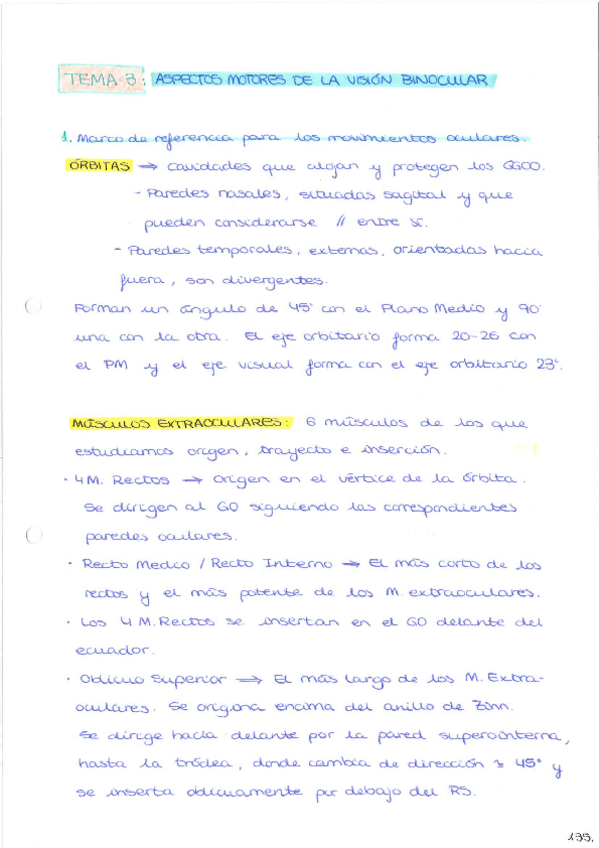 TEMA 3: ASPECTOS MOTORES DE LA VISIÓN BINOCULAR
1. Marco de referencia para los movimientos oculares.
ÓRBITAS → Cavidades que alojan y protegen los GGOO.
- Paredes nasales, situadas sagital y que
pueden considerarse // entre sí.
- Paredes temporales, externas, orientadas hacia
fuera, son divergentes.
Forman un ángulo de 45° con el Plano Medio y 90°
una con la otra. El eje orbitario forma 20-26 con
el PM y el eje visual forma con el eje orbitario 23°.
MÚSCULOS EXTRAOCULARES: 6 músculos de los que
estudiamos origen, trayecto e inserción.
· 4 M. Rectos → Origen en el vértice de la órbita.
Se dirigen al GO siguiendo las correspondientes
paredes oculares.
· Recto Medio / Recto Interno → El más corto de los
rectos y el más potente de los M. extraoculares.
· Los 4 M. Rectos se insertan en el GO delante del
ecuador.
· Oblicuo Superior → El más largo de los M. Extra-
oculares. Se origina encima del anillo de Zinn.
Se dirige hacia delante por la pared superointerna,
hasta la tróclea, donde cambia de dirección ≈ 45° y
se inserta oblicuamente por debajo del RS.
135.